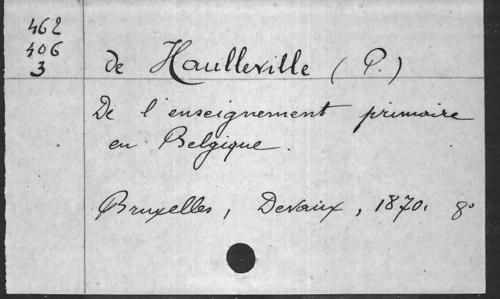 462
406
3
de Haulleville (P.)
De l'enseignement primaire
en Belgique.
Bruxelles, Devaux, 1870. 8°